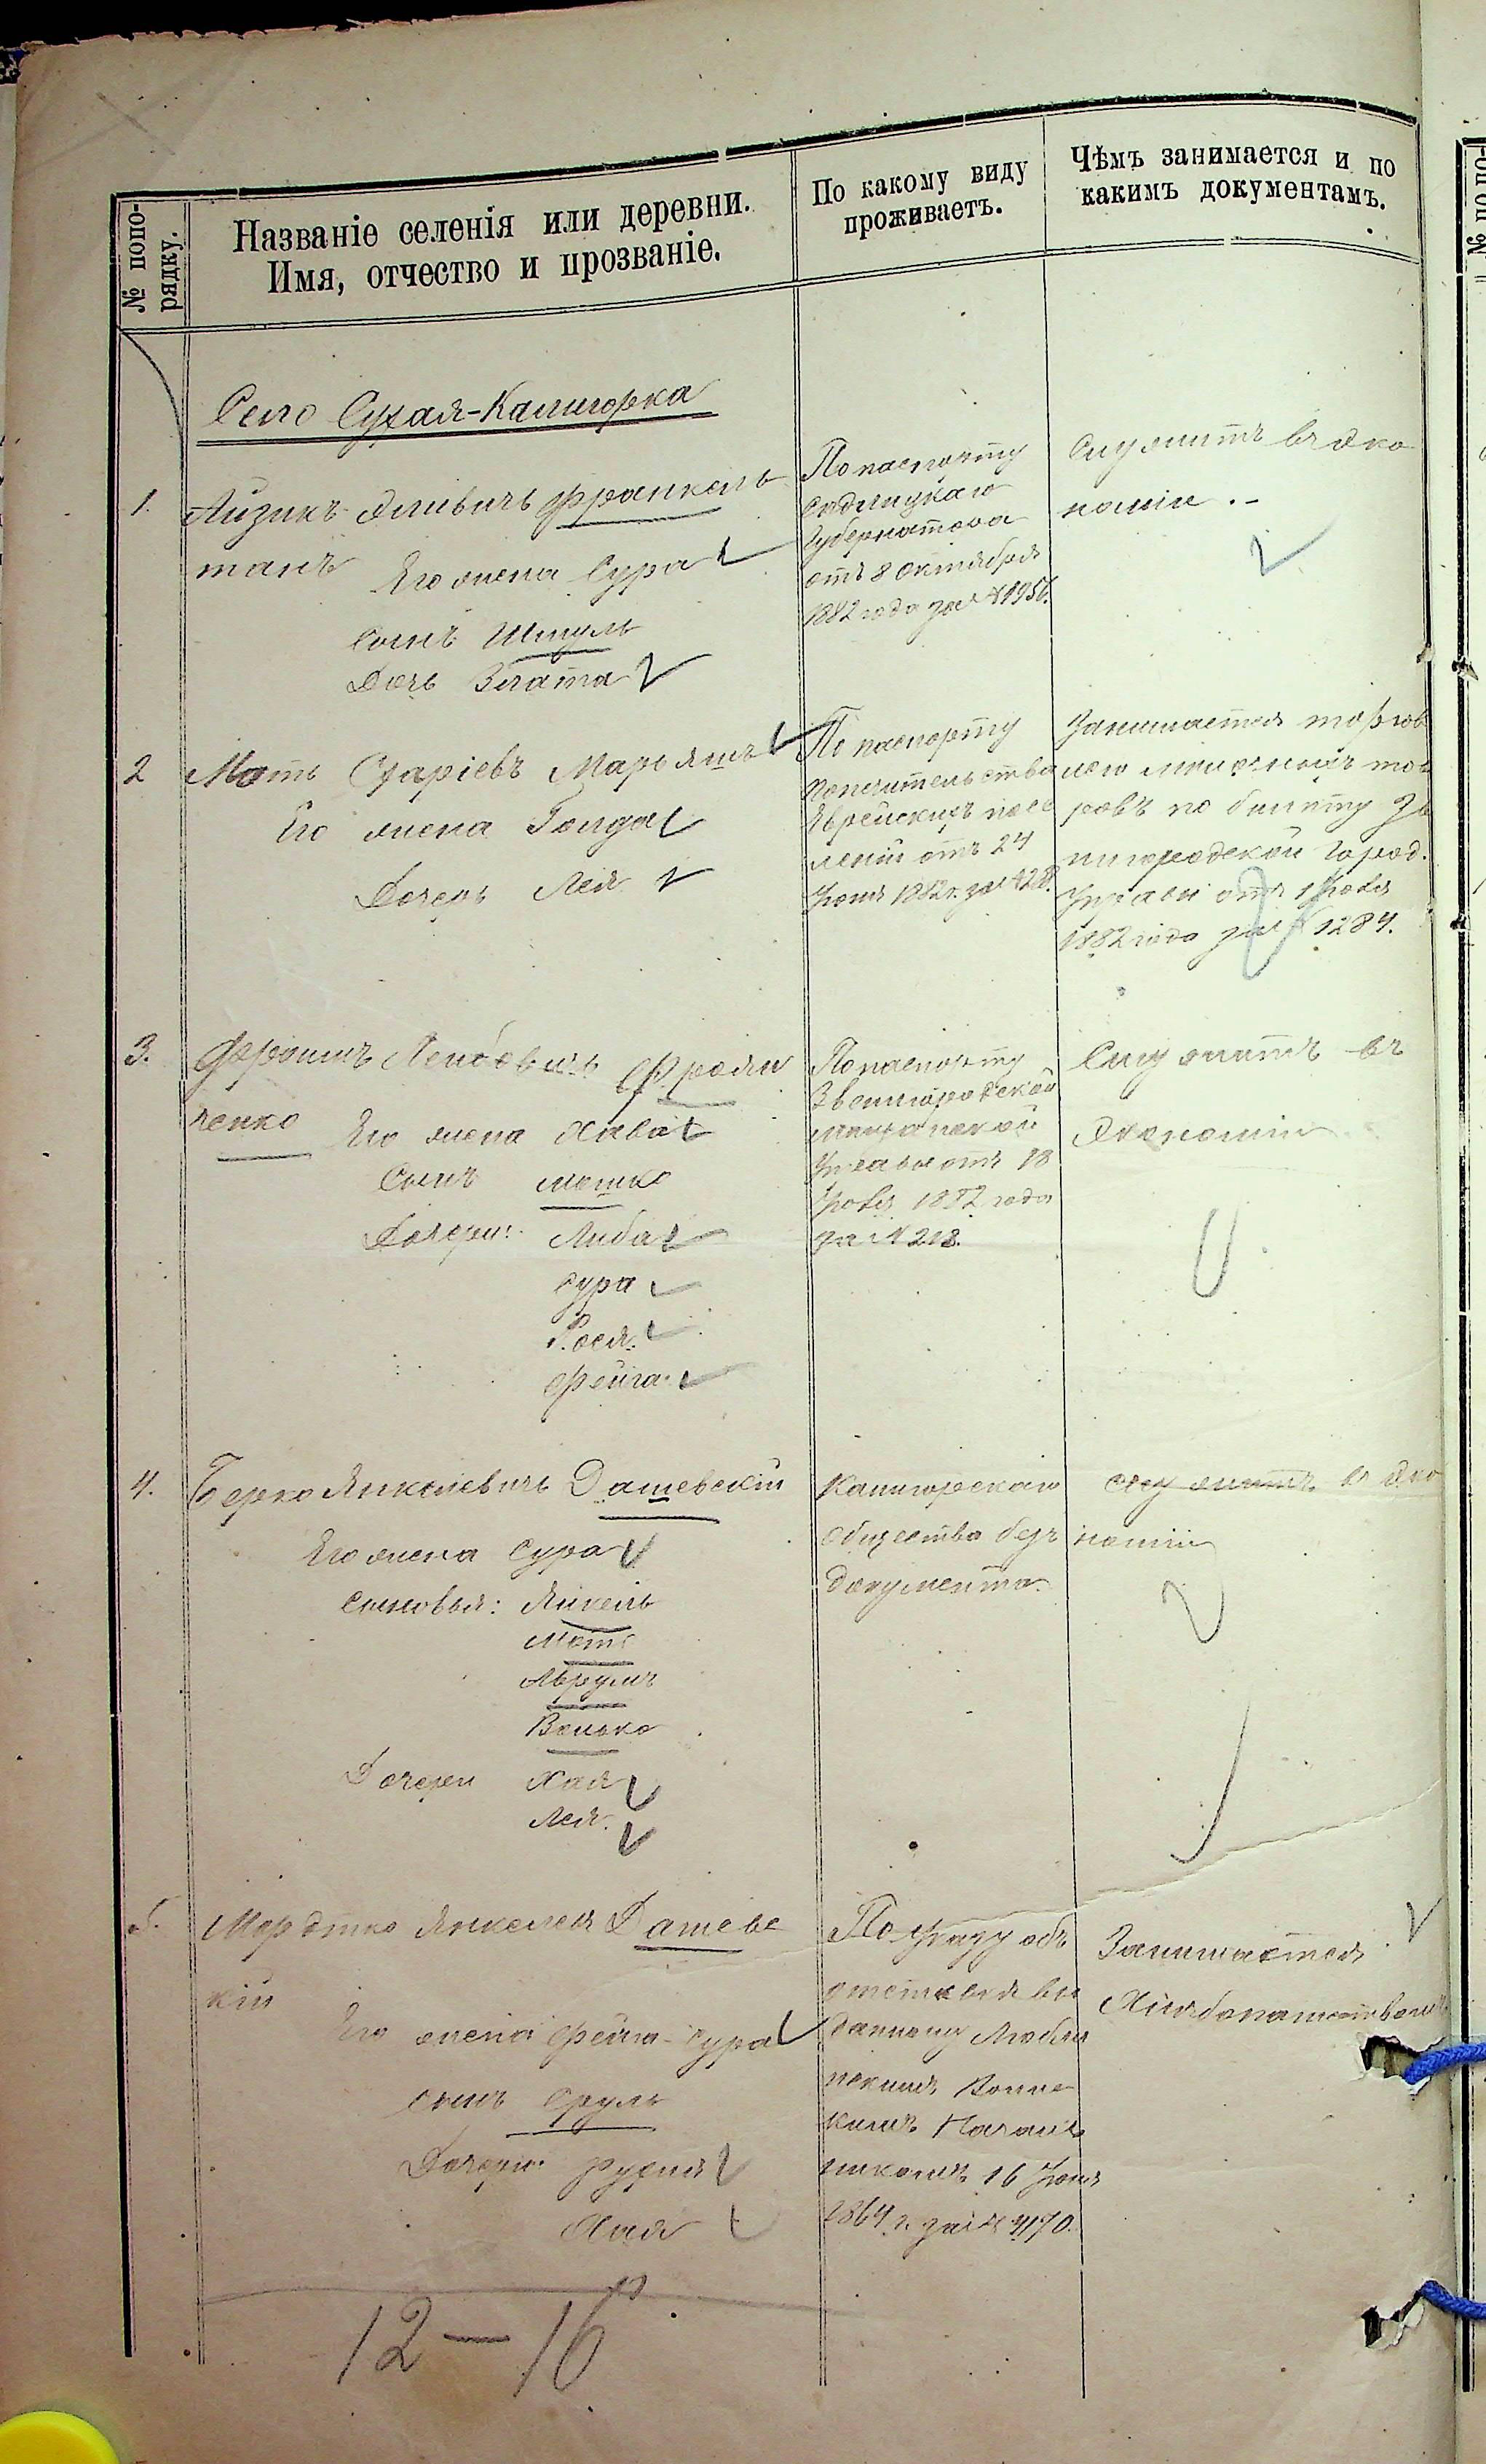 № попо-
рядку.
Названіе селенія или деревни.
Имя, отчество и прозваніе.
По какому виду
проживаетъ.
Чѣмъ занимается и по
какимъ документамъ.
Село Сухая-Калигорка
1.
Айзикъ Эліевичъ Франкель
танъ Его жена Сура
Сынъ Шмуль
Дочь Злата
По паспорту
Сѣдлецкаго
Губернатора
отъ 8 Октября
1882 года за №
Служитъ въ эко
номіи.-
2
Моть Маріямъ
Его жена Голда
Дочерь Лея
По паспорту
попечительства
Еврейскихъ посе
леній отъ 24
Іюня 1882 г. за №
Занимается торгов
лею това
ровъ по билету Зве
нигородской Город.
Управы отъ 1 Іюля
1882 года за № 1284.
3.
Фроимъ Лейбовичъ Фроли
ченко Его жена Хава
Сынъ Мошко
Дочери: Либа
Сура
Рося
Фейга
По паспорту
Звенигородской
мѣщанской
Управы отъ 18
Іюля 1882 года
за № 218.
Служитъ въ
Экономіи
4.
Берко Янкелевичъ Дашевскій
Его жена Сура
Сыновья: Янкель
Моть
Аврумъ
Волько
Дочери Хая
Лея
Калигорскаго
общества безъ
документа
Служитъ въ эко
номіи
5.
Мордко Янкелев Дашевс
кій
Его жена Фейга-Сура
сынъ Сруль
Дочери: Рухля
Хая
По Указу объ
отставкѣ вы
данному Люблин
скимъ Воинс
кимъ Началь
никомъ 16 Іюня
1864 г. за № 4170.
Занимается
Хлѣбопашествомъ
12 — 16
№ попо-